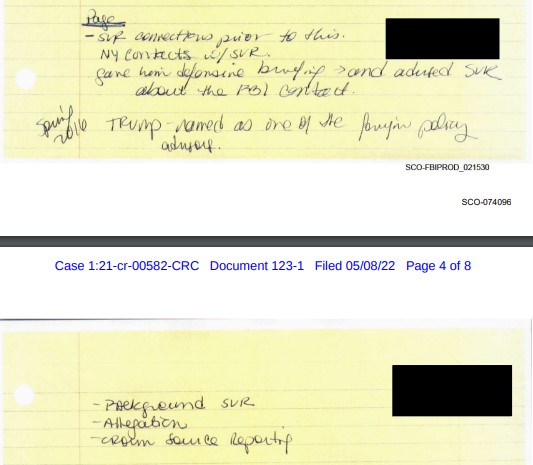 Page
- SVR connections prior to this.
NY Contacts w/ SVR.
gave him defensive briefing → and advised SVR
about the FBI contact.
Spring 2016 TRUMP - named as one of the foreign policy
advisors.
SCO-FBIPROD_021530
SCO-074096
Case 1:21-cr-00582-CRC Document 123-1 Filed 05/08/22 Page 4 of 8
- Background SVR
- Allegation
- CROWN Source Reporting